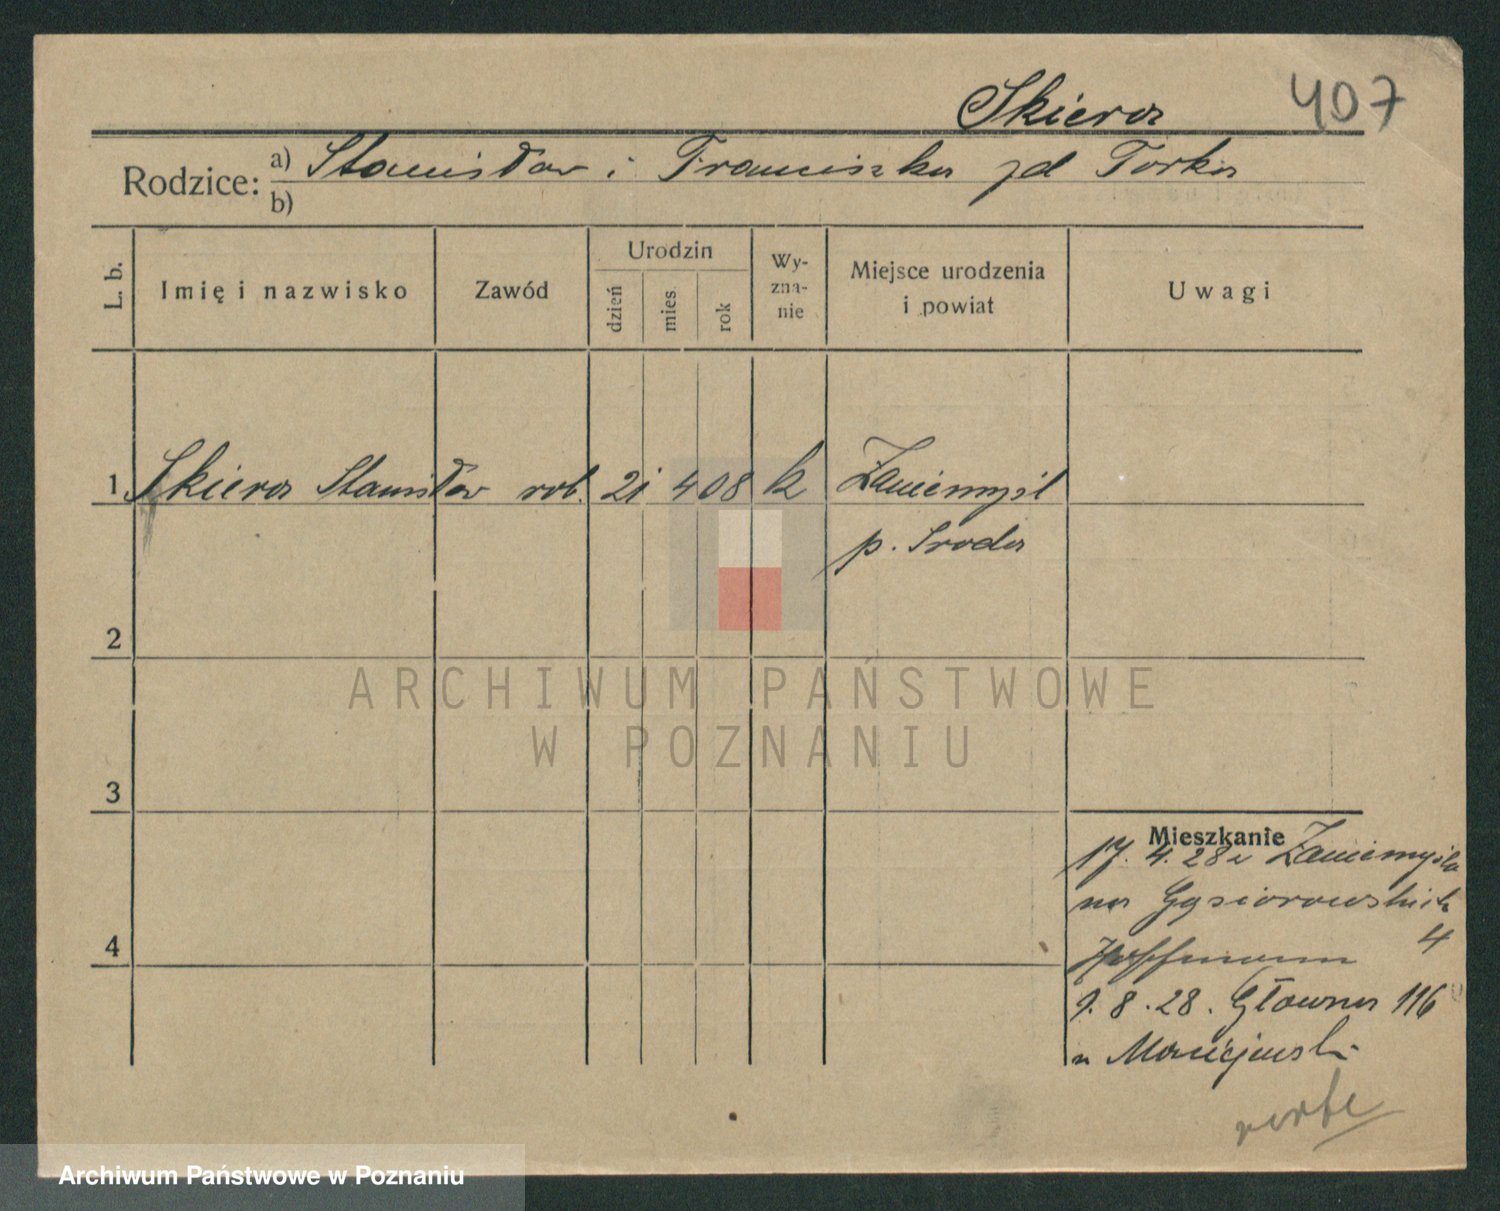 Skiera 407
Rodzice: a) Stanisław i Franciszka zd Torka
b)
L. b. Imię i nazwisko Zawód Urodzin dzień mies rok Wyznanie Miejsce urodzenia i powiat Uwagi
1 Skiera Stanisław rob. 21 4 08 k Zaniemyśl
p. Środa
2
ARCHIWUM PAŃSTWOWE
W POZNANIU
3
Mieszkanie
17. 4. 28 z Zaniemyśla
na Gąsiorowskich
4
Hoffmann
9. 8. 28. Główna 116
u Maciejewski
verte
Archiwum Państwowe w Poznaniu